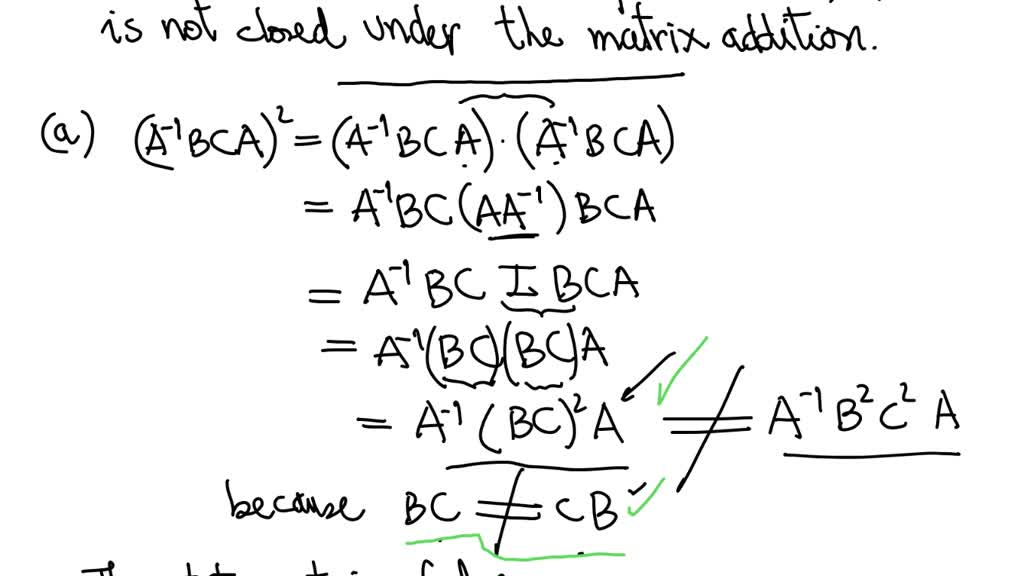 is not closed under the matrix addition.
(a) (A⁻¹BCA)² = (A⁻¹BCA)·(A⁻¹BCA)
= A⁻¹BC(AA⁻¹)BCA
= A⁻¹BC I BCA
= A⁻¹(BC)(BC)A
= A⁻¹(BC)²A ≠ A⁻¹B²C²A
because BC ≠ CB